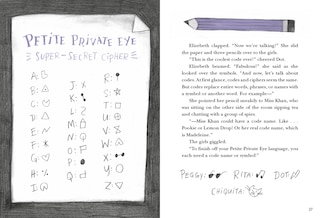 PETITE PRIVATE EYE
SUPER-SECRET CIPHER
A:
B:
C:
D:
E:
F:
G:
H:
I:
J:
K:
L:
M:
N:
O:
P:
Q:
R:
S:
T:
U:
V:
W:
X:
Y:
Z:
Elizabeth clapped. "Now we're talking!" She slid
the paper and three pencils over to the girls.
"This is the coolest code ever!" cheered Dot.
Elizabeth beamed. "Fabulous!" she said as she
looked over the symbols. "And now, let's talk about
codes. At first glance, codes and ciphers seem the same.
But codes replace entire words, phrases, or names with
a symbol or another word. For example—"
She pointed her pencil sneakily to Miss Khan, who
was sitting on the other side of the room sipping tea
and chatting with a group of spies.
"—Miss Khan could have a code name. Like . . .
Pookie or Lemon Drop! Or her real code name, which
is Madeleine."
The girls giggled.
"To finish off your Petite Private Eye language, you
each need a code name or symbol!"
PEGGY: RITA: DOT:
CHIQUITA: